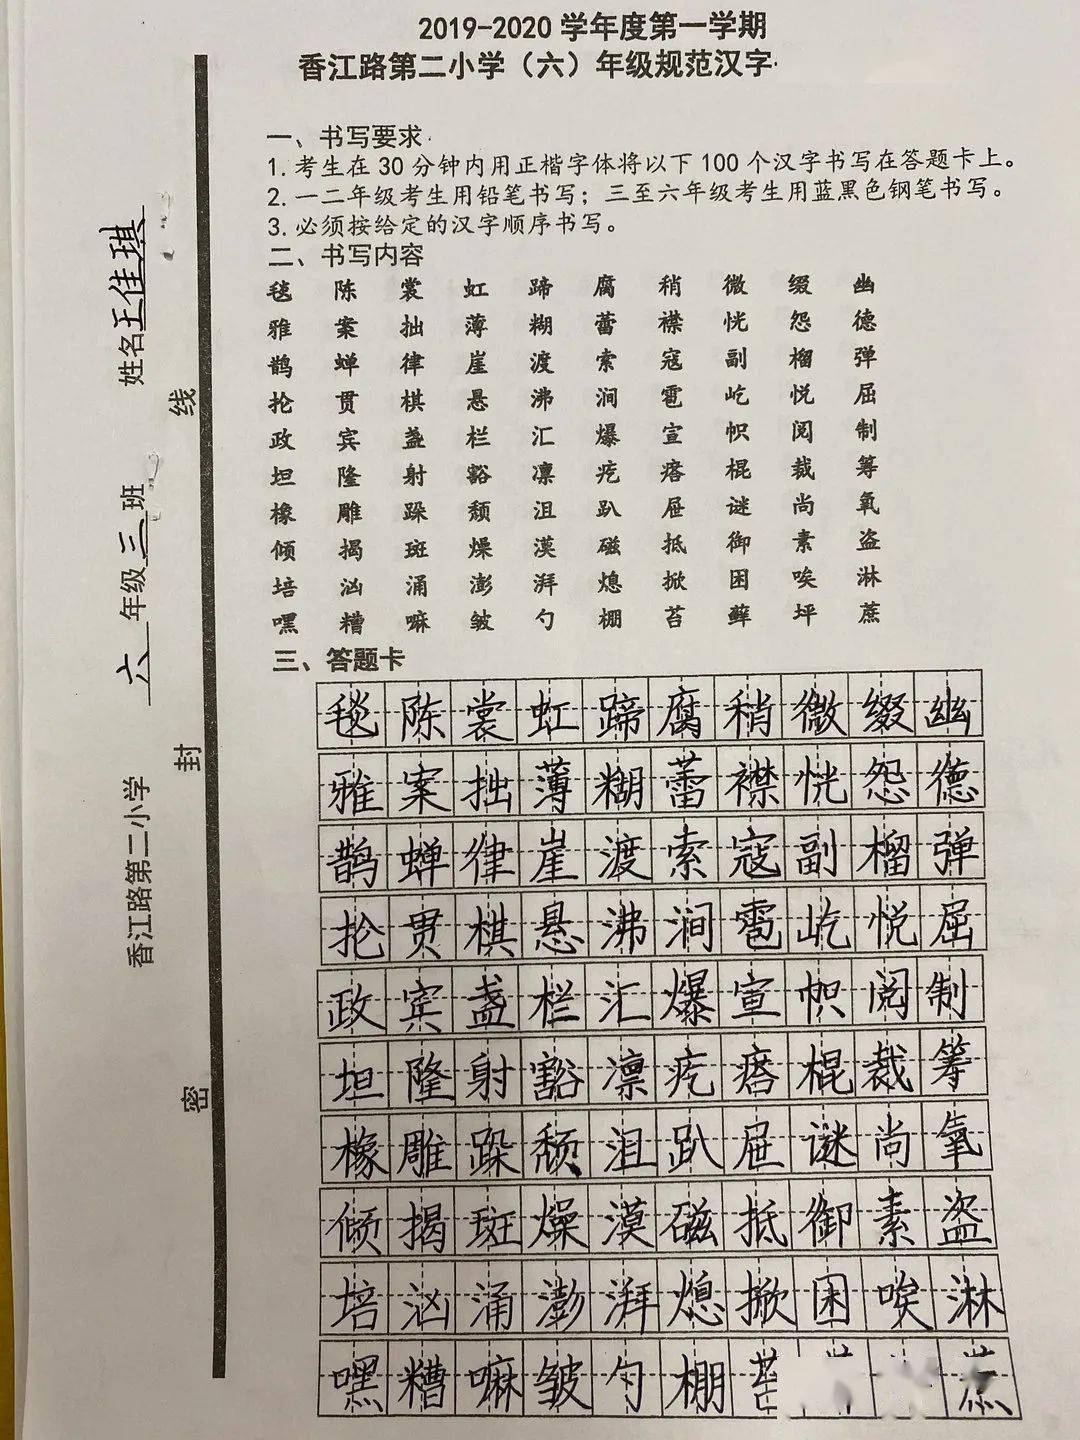 2019-2020 学年度第一学期
香江路第二小学（六）年级规范汉字
一、书写要求
1. 考生在 30 分钟内用正楷字体将以下 100 个汉字书写在答题卡上。
2. 一二年级考生用铅笔书写；三至六年级考生用蓝黑色钢笔书写。
3. 必须按给定的汉字顺序书写。
二、书写内容
毯 陈 裳 虹 蹄 腐 稍 微 缀 幽
雅 案 拙 薄 糊 蕾 襟 恍 怨 德
鹊 蝉 律 崖 渡 索 寇 副 榴 弹
抡 贯 棋 悬 沸 涧 雹 屹 悦 屈
政 宾 盏 栏 汇 爆 宣 帜 阅 制
坦 隆 射 豁 凛 疙 瘩 棍 裁 筹
橡 雕 跺 颓 沮 趴 屉 谜 尚 氧
倾 揭 斑 燥 漠 磁 抵 御 素 盗
培 汹 涌 澎 湃 熄 掀 困 唉 淋
嘿 糟 嘛 皱 勺 棚 苔 藓 坪 蔗
三、答题卡
毯 陈 裳 虹 蹄 腐 稍 微 缀 幽
雅 案 拙 薄 糊 蕾 襟 恍 怨 德
鹊 蝉 律 崖 渡 索 寇 副 榴 弹
抡 贯 棋 悬 沸 涧 雹 屹 悦 屈
政 宾 盏 栏 汇 爆 宣 帜 阅 制
坦 隆 射 豁 凛 疙 瘩 棍 裁 筹
橡 雕 跺 颓 沮 趴 屉 谜 尚 氧
倾 揭 斑 燥 漠 磁 抵 御 素 盗
培 汹 涌 澎 湃 熄 掀 困 唉 淋
嘿 糟 嘛 皱 勺 棚
香江路第二小学 六 年级 三 班 姓名 王佳琪
密 封 线